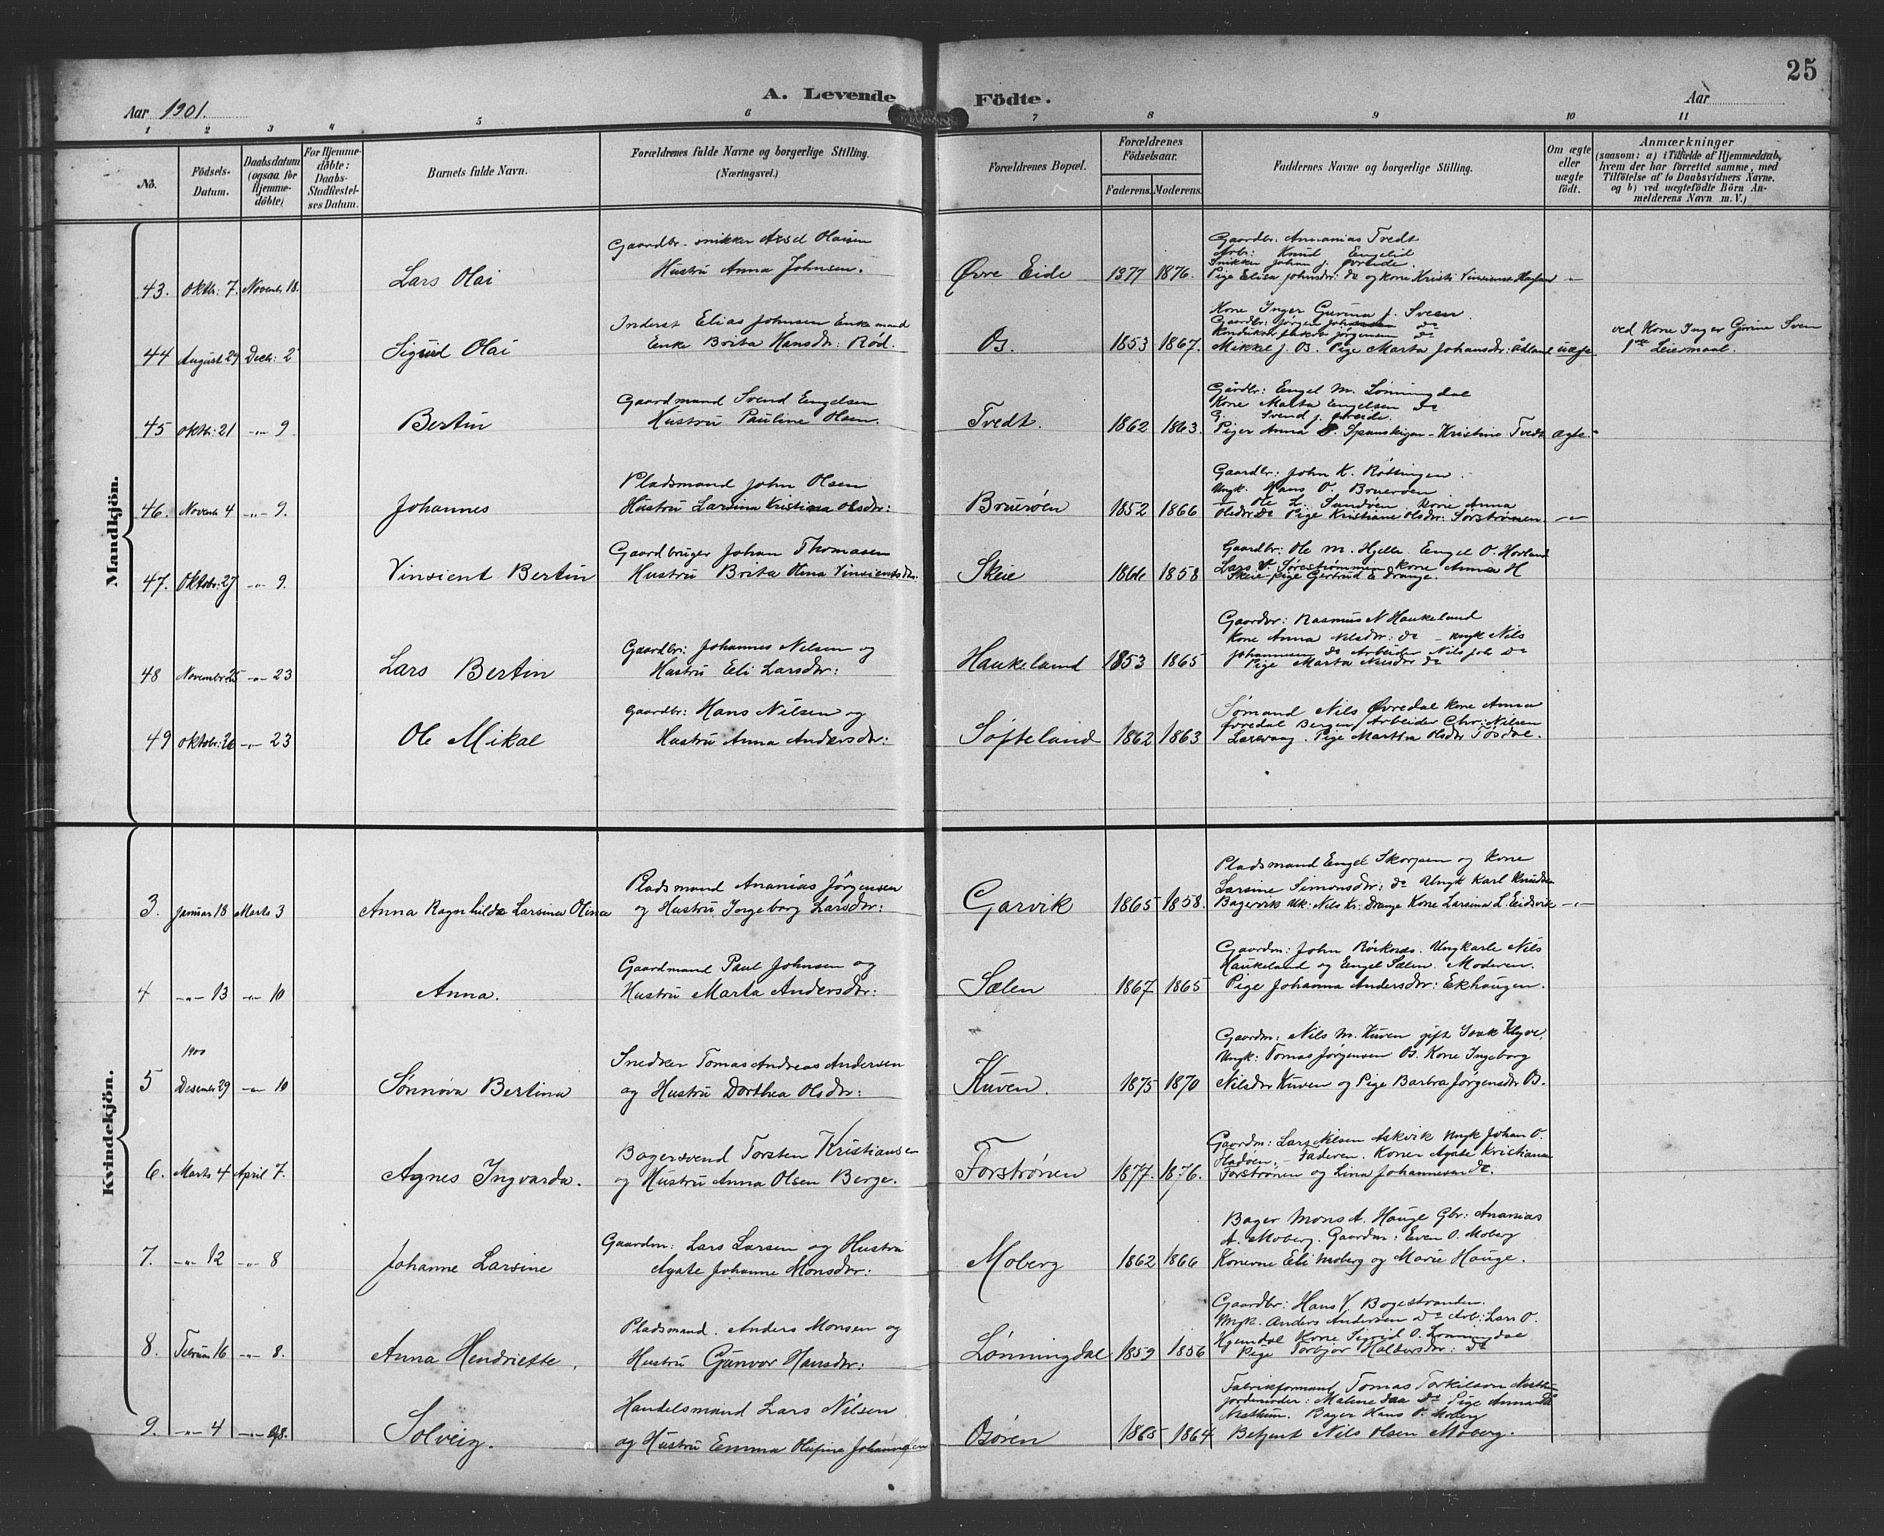 25
Aar 1901. A. Levende Födte. Aar
1 2 3 4 5 6 7 8 9 10 11
No. Födsels-Datum. Daabsdatum (ogsaa for Hjemmedöbte) For Hjemmedöbte: Daabs-Stadfæstelses Datum. Barnets fulde Navn. Forældrenes fulde Navne og borgerlige Stilling. (Næringsvei.) Forældrenes Bopæl. Forældrenes Födselsaar. Faderens. Moderens. Faddernes Navne og borgerlige Stilling. Om ægte eller uægte födt. Anmærkninger
(saasom: a) i Tilfælde af Hjemmedaab, hvem der har forrettet samme, med Tilföielse af to Daabsvidners Navne. og b) ved uægtefödte Börn Anmelderens Navn m. V.)
Mandkjön.
Gaardbr. snikker Axel Olaisen
Gaardbr: Annanias Tvedt
Arb: Knud Engelid
Snikker Johan J. Øvreide.
43. Oktbr: 7. Novembr 18. Lars Olai Hustru Anna Johnsen. Øvre Eide 1877 1876. Pige Elisa Johnsdr: do og kone Kristi
Inderst Elias Johnsen Enkemand
Kone Inger Gurina J. Sveen
44 August 29 Decbr: 2 Sigurd Olai Enke Brita Hansdr: Rød. Os. 1853 1867. Mikkel J. Os. Pige Marta Johansdr: Ådland uægte
ved Kone Inger Gurina Sveen
1ste Leiermaal.
Gaardmand Svend Engelsen
Gårdbr: Engel M. Lønningdal
Kone Marta Engelsen do
G. Svend J. Øvreide.
45 Oktbr: 21 -"- 9 Bertin Hustru Pauline Olsen. Tvedt. 1862 1863. Piger Anna Spanskigen - Kristine Tvedt ægte.
Pladsmand John Olsen
Gaardbr: John K. Røttingen
Ungk. Hans O. Bruerøen
46. Novembr 4 -"- 9. Johannes Hustru Larsina Kristina Olsdr: Bruerøen 1852 1866
- Ole L. Sundøen Kone Anna
Olsdr: do Pige Kristiane Olsdr: Sørstrønen. -"-
Gaardbruger Johan Thomasen
Gaardbr: Ole M. Hjelle Engel O. Hovland
47. Oktobr: 27 -"- 9. Vinsient Bertin Hustru Brita Olina Vinsientsdr. Skeie 1866 1858
Lars V. Sørestrømmen kone Anna H
Skeie pige Gertrud E Drange.
Gaardbr: Johannes Nilsen og
Gaardbr: Rasmus N Haukeland
Kone Anna Nilsdr: do - ungk Nils
48 Novembr 25 -"- 23 Lars Bertin Hustru Eli Larsdr: Haukeland 1853 1865
Johannesen do Arbeider Nils Joh do
Pige Marta Nilsdr do
Gaardbr: Hans Nilsen og
Sømand Nils Øvredal kone Anna
49 Oktobr: 26 -"- 23 Ole Mikal Hustru Anna Andersdr: Søfteland 1862 1863
Øvredal Bergen, Arbeider Chr: Nilsen
Larsvaag. Pige Martha Olsdr Tøsdal.
Kvindekjön.
Pladsmand Ananias Jørgensen
Pladsmand Engel Skorpen og Kone
Larsine Simonsdr: do Ungk Karl Knudsen
3. Januar 18 Marts 3 Anna Ragnhilda Larsina Olina og Hustru Ingeborg Larsdr: Garvik 1865 1858. Bagervik Uk: Nils Kr: Drange Kone Larsina L. Eidsvik -"-
Gaardmand Paul Johnsen og
Gaardm: John Røtknes. Ungkarle Nils
Haukeland og Engel Sælen. Moderen.
4 -"- 13 -"- 10 Anna. Hustru Marta Andersdr: Sælen 1867 1865 Pige Johanna Andersdr: Ekhaugen.
1900
Snedker Tomas Andreas Andersen
Gaardm: Nils M. Kuven gift Isak Klyve.
Ungk: Tomas Jørgensen Os. Kone Ingeborg
5 Desember 29 -"- 10 Sønnøva Bertina og Hustru Dorthea Olsdr: Kuven. 1875 1870 Nilsdr Kuven og Pige Barbra Jørgensdr Os.
Bagersvend Torsten Kristiansen
Gaardm: Lars Nilsen Askvik Ungk Johan O.
Fladøen. - Faderen. Koner Agate Kristiansen
6. Marts 4 April 7. Agnes Ingvarda. og Hustru Anna Olsen Berge. Forstrønen 1877. 1876. Forstrønen og Lina Johannesen do
Gaardm: Lars Larsen og Hustru
Bager Mons A. Hauge Gbr: Ananias
A. Moberg. Gaardm: Even O. Moberg
7. -"- 12 -"- 8 Johanne Larsine Agate Johanne Monsdr: Moberg 1862 1866 Konerne Eli Moberg og Marie Hauge.
Pladsmand. Anders Monsen og
Gaardbr: Hans V. Bogestranden.
Ungk. Anders Andersen do Arb: Lars O.
8. Februar 16 -"- 8. Anna Hendriette. Hustru Gunvor Hansdr: Lønningdal 1859 1856
Hjemdal Kone Sigrid O. Lønningdal
Pige Torbjør Haldorsdr: do
Handelsmand Lars Nilsen
Fabrikformand Tomas Torkilsen
Nattun. Bager Hans O. Moberg
9. -"- 4 -"- 8. Solveig. og Hustru Emma Olufine Johannesen Osøren 1865 1864 Betjent Nils Olsen Moberg.